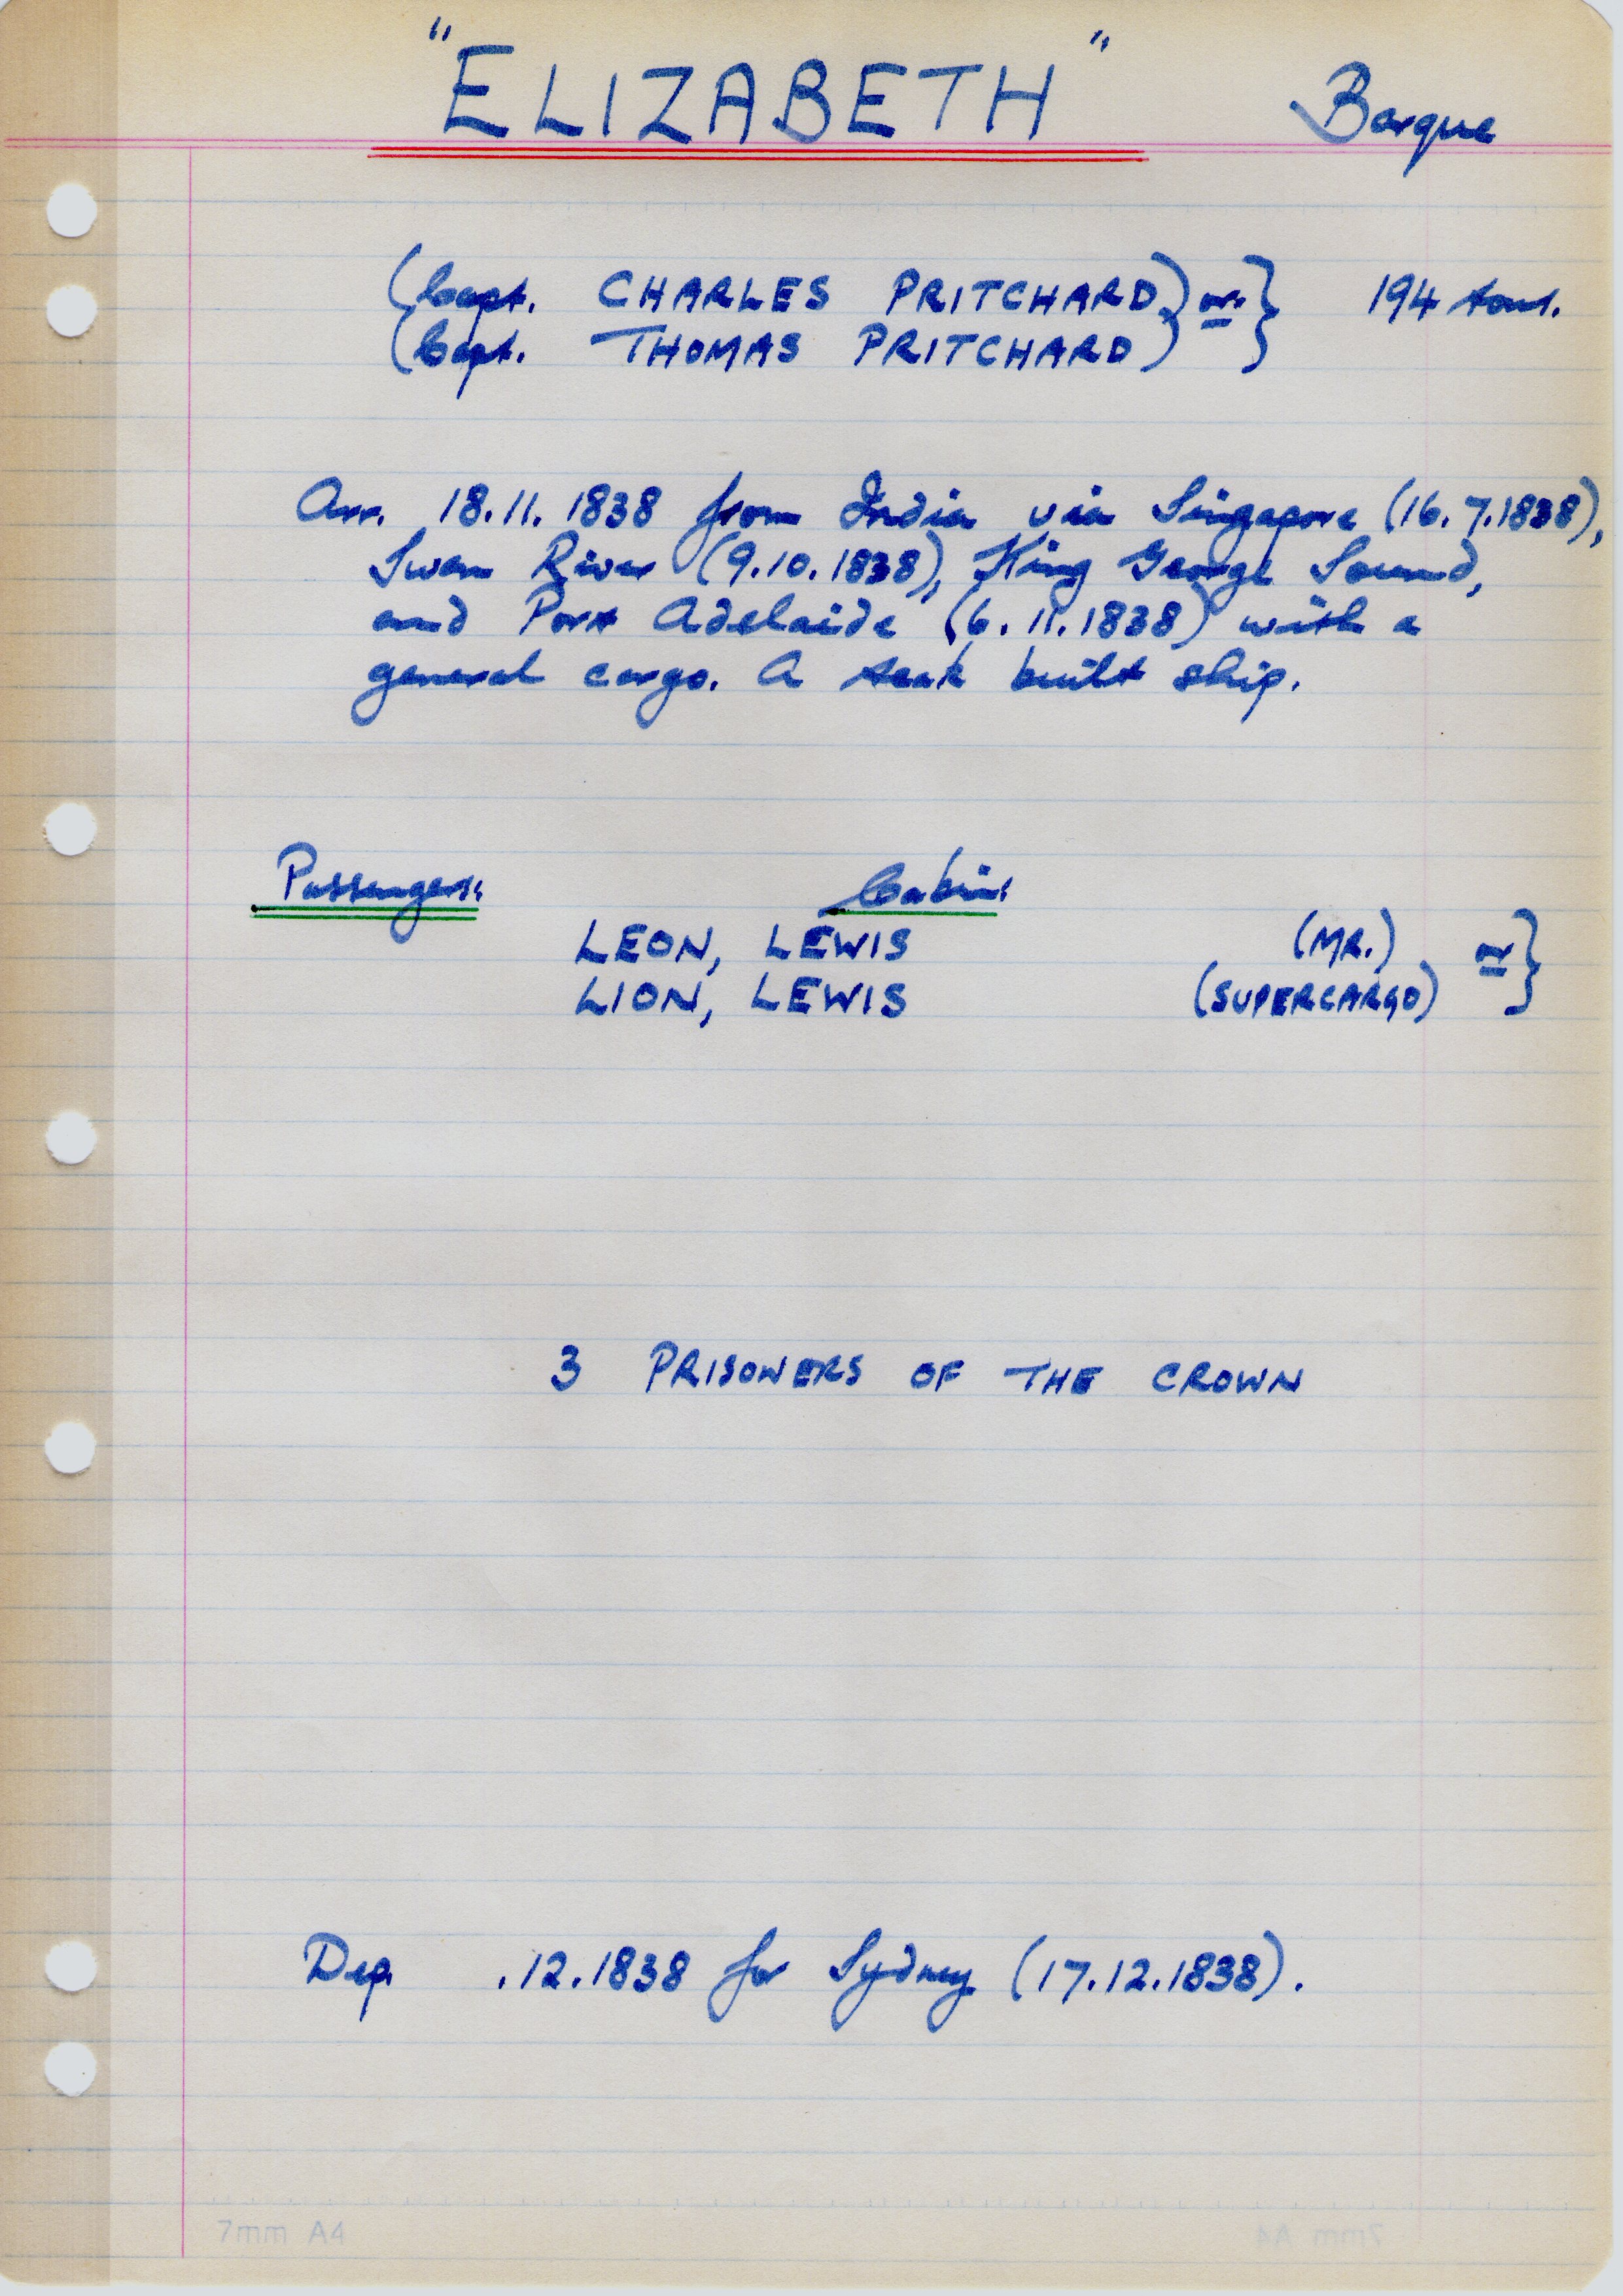 "ELIZABETH" Barque
(Capt. CHARLES PRITCHARD) or } 194 tons.
(Capt. THOMAS PRITCHARD)
Arr. 18.11.1838 from India via Singapore (16.7.1838),
Swan River (9.10.1838), King George Sound,
and Port Adelaide (6.11.1838) with a
general cargo. A teak built ship.
Passengers: Cabin:
LEON, LEWIS (MR.) or }
LION, LEWIS (SUPERCARGO)
3 PRISONERS OF THE CROWN
Dep. .12.1838 for Sydney (17.12.1838).
7mm A4
7mm A4